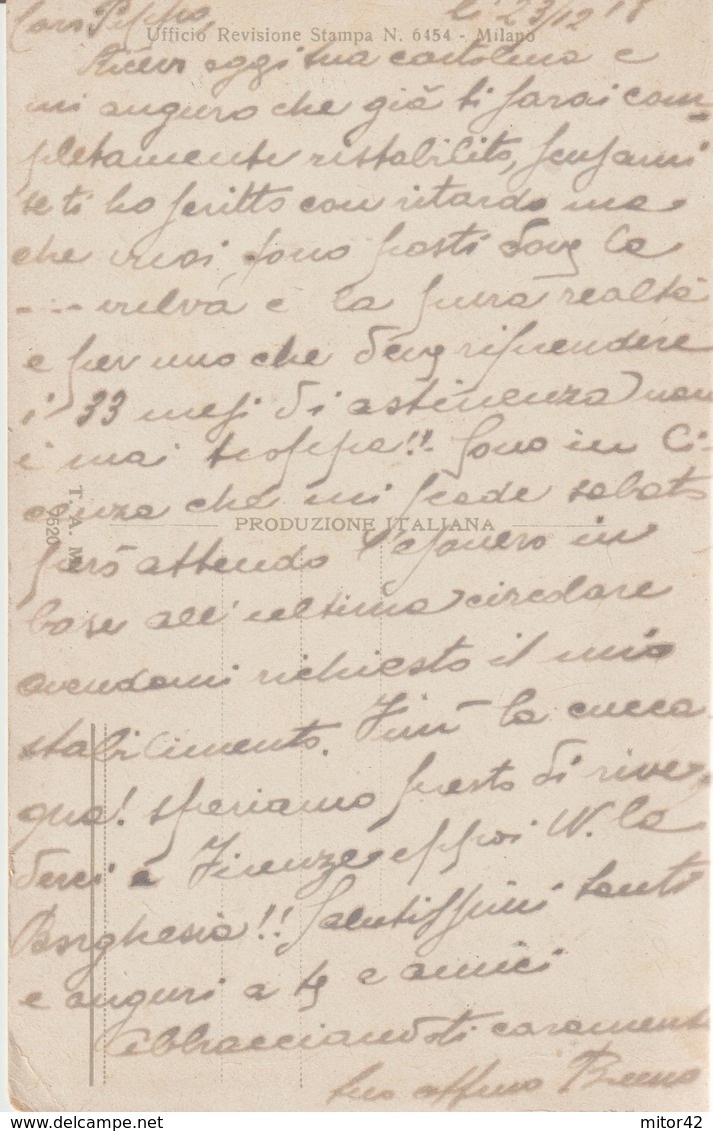 Caro Peppo, li 23/12 18
Ufficio Revisione Stampa N. 6454 - Milano
Ricevo oggi tua cartolina e
mi auguro che già ti sarai com-
pletamente ristabilito, scusami
se ti ho scritto con ritardo ma
che vuoi, sono posti dove la
---- vulva è la pura realtà
e per uno che deve riprendere
i 33 mesi di astinenza non
è mai troppa!! Sono in li-
cenza che mi scade sabato
T. A. M. 9520
PRODUZIONE ITALIANA
però attendo l'esonero in
base all'ultima circolare
avendomi richiesto il mio
stabilimento. Finì la cucca-
gna! speriamo presto di rive-
derci a Firenze eppoi W. la
Borghesia!! Salutissimi tanti
e auguri a te e amici
Abbracciandoti caramente
tuo affmo Bruno
mitor42